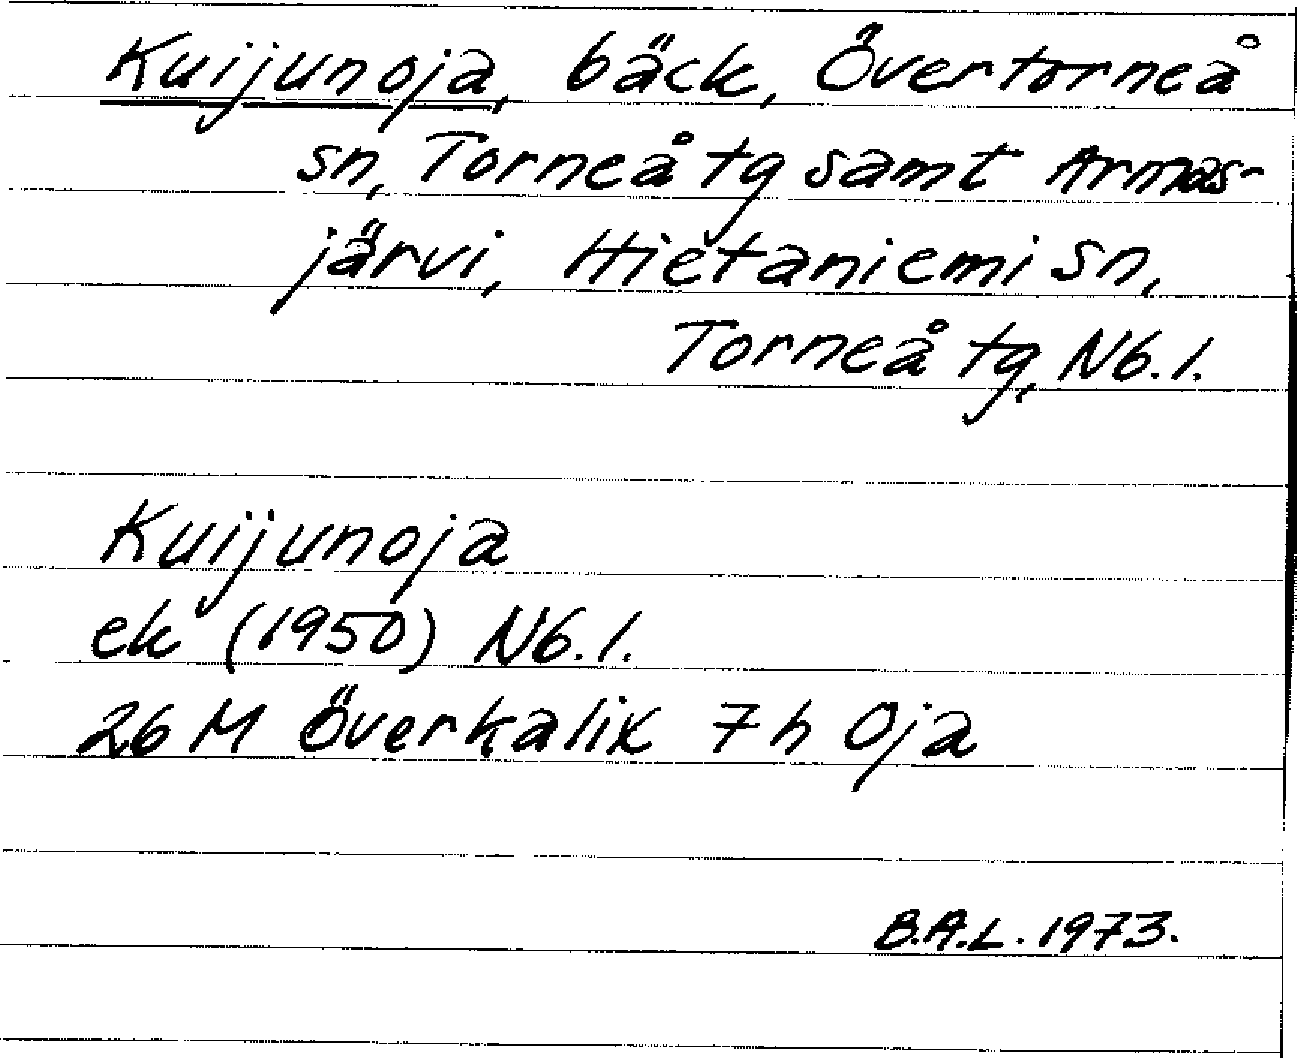 Kuijunoja, bäck, Övertorneå
sn, Torneå tg samt Armas-
järvi, Hietaniemi sn,
Torneå tg, Nb.l.
Kuijunoja
ek (1950) Nb.l.
26 M Överkalix 7 h Oja
B.A.L. 1973.